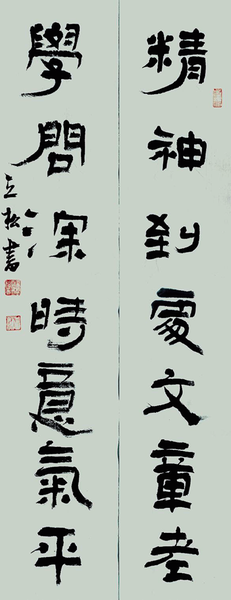 精神到處文章老
學問深時意氣平
立松書